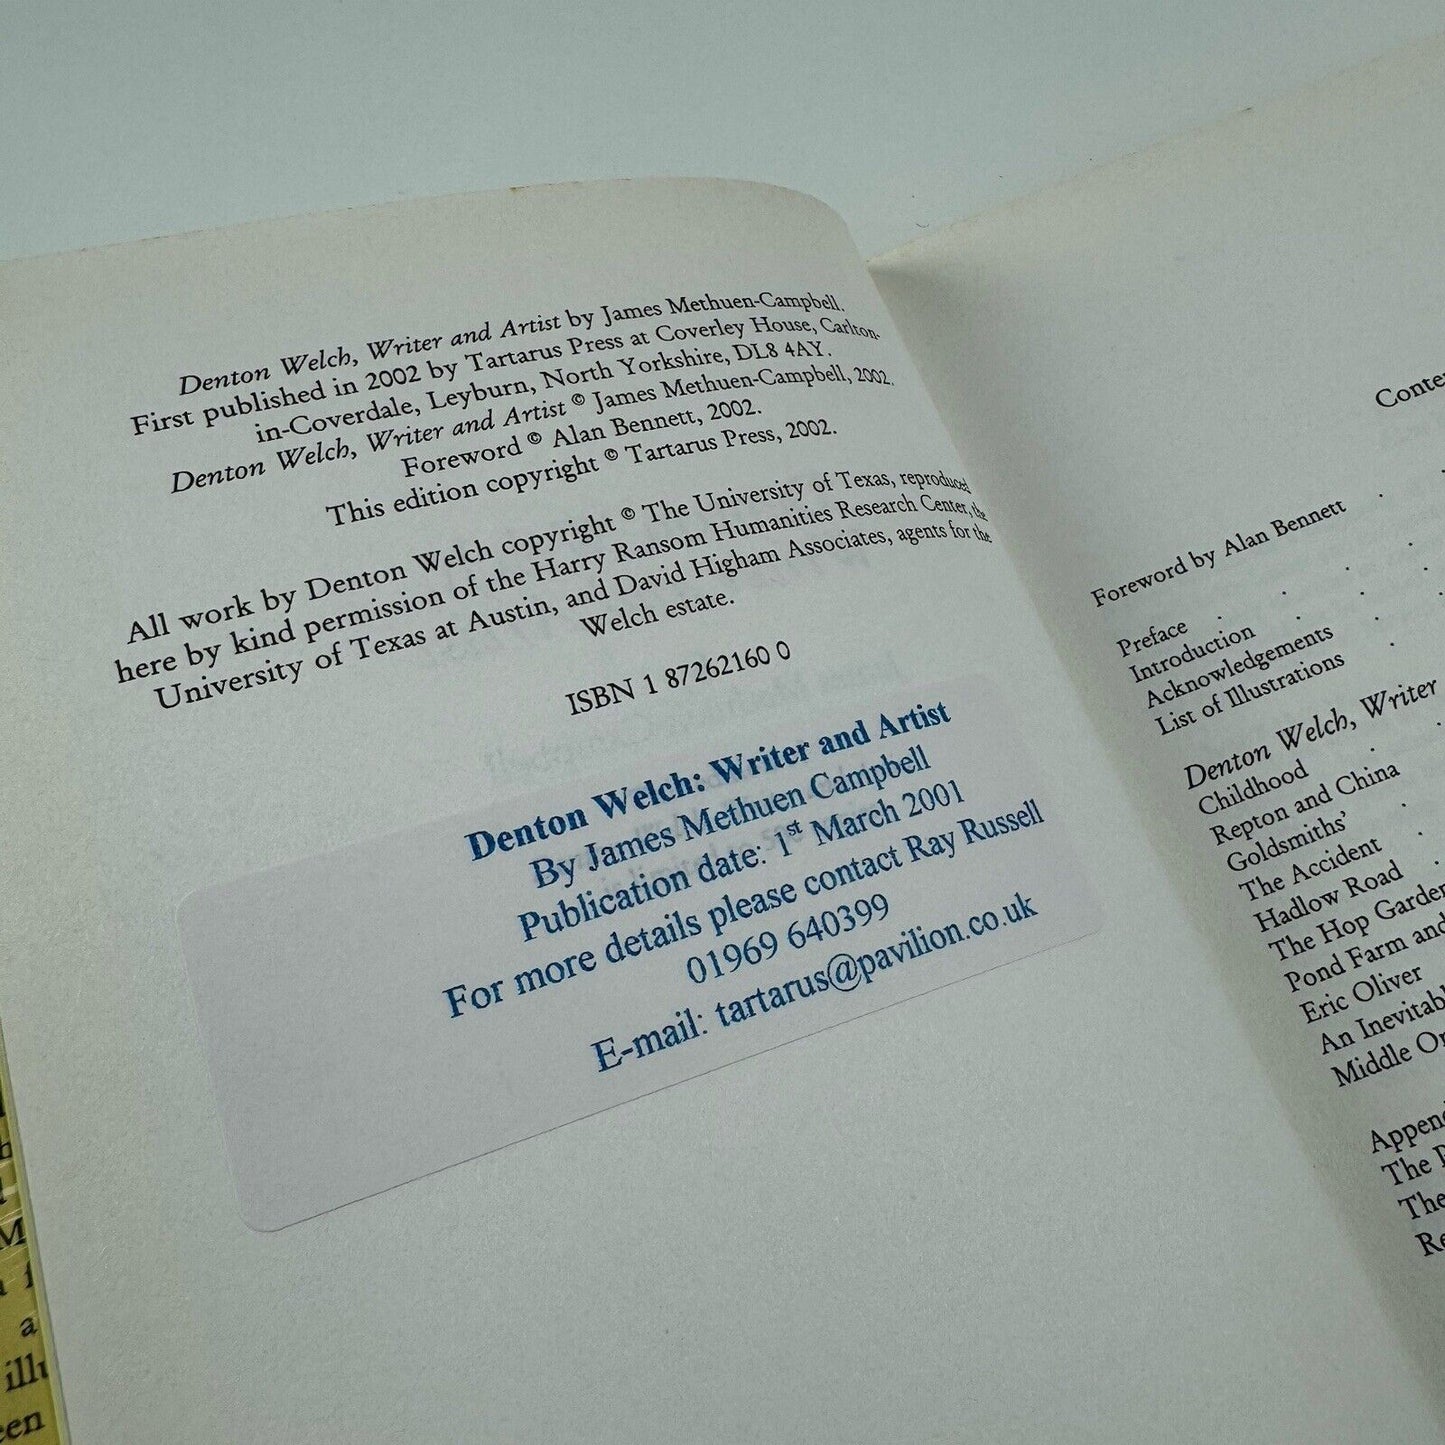 Denton Welch, Writer and Artist by James Methuen-Campbell.
First published in 2002 by Tartarus Press at Coverley House, Carlton-
in-Coverdale, Leyburn, North Yorkshire, DL8 4AY.
Denton Welch, Writer and Artist © James Methuen-Campbell, 2002.
Foreword © Alan Bennett, 2002.
This edition copyright © Tartarus Press, 2002.
All work by Denton Welch copyright © The University of Texas, reproduced
here by kind permission of the Harry Ransom Humanities Research Center, the
University of Texas at Austin, and David Higham Associates, agents for the
Welch estate.
ISBN 1 87262160 0
Denton Welch: Writer and Artist
By James Methuen Campbell
Publication date: 1st March 2001
For more details please contact Ray Russell
01969 640399
E-mail: tartarus@pavilion.co.uk
Foreword by Alan Bennett
Preface
Introduction
Acknowledgements
List of Illustrations
Denton Welch, Writer
Childhood
Repton and China
Goldsmiths'
The Accident
Hadlow Road
The Hop Garden
Pond Farm and
Eric Oliver
An
Middle
The
The